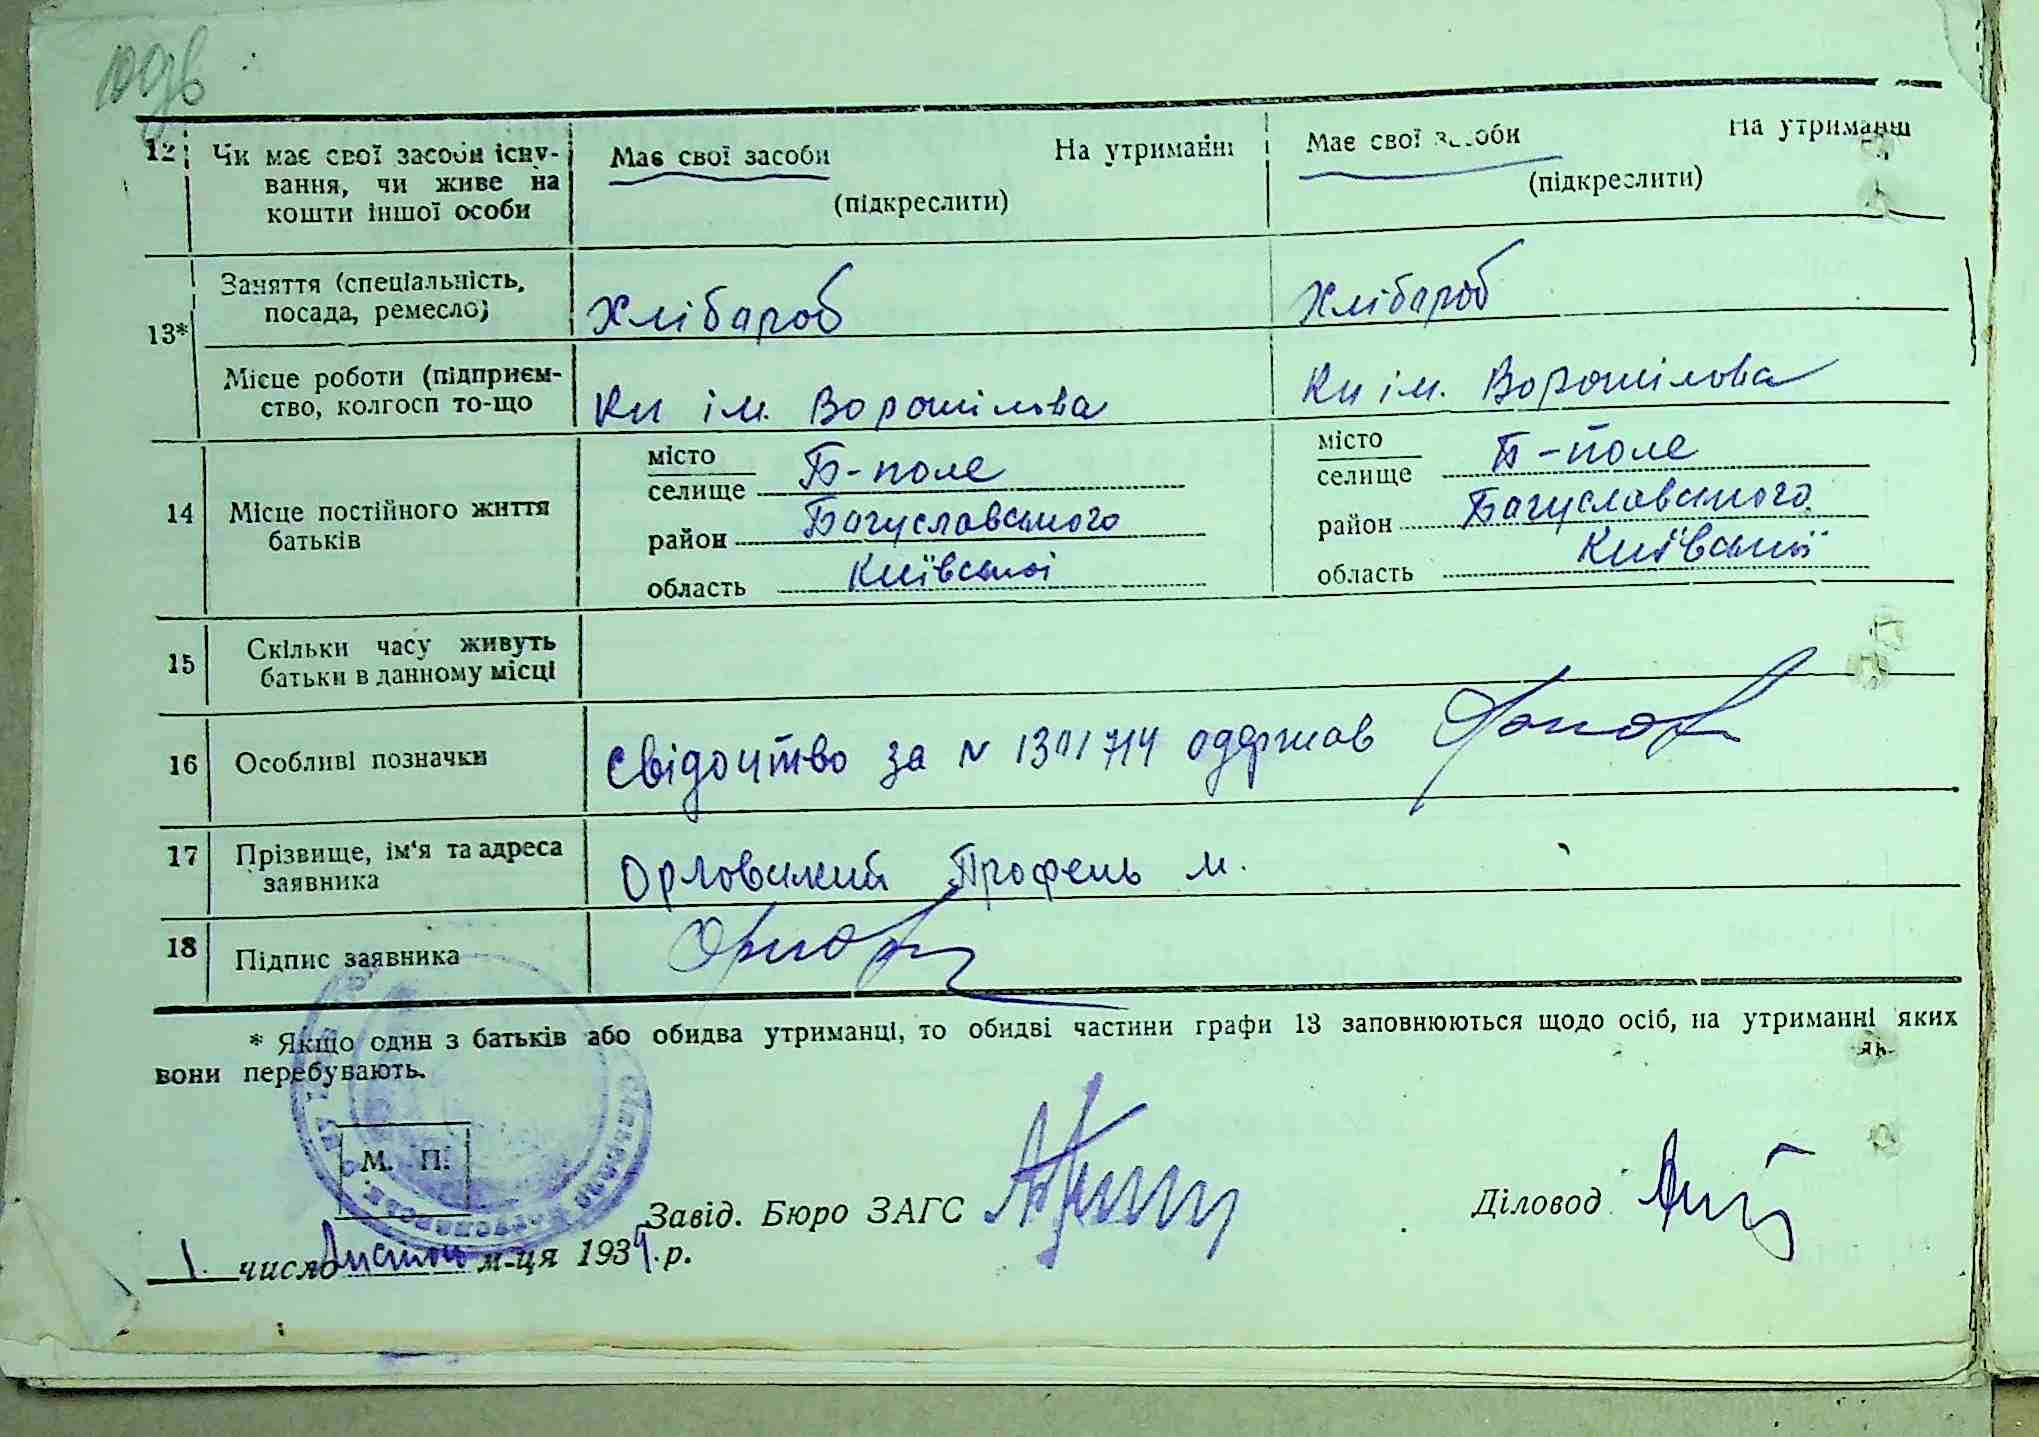 12 Чи має свої засоби існу- Має свої засоби На утриманні Має свої засоби На утриманні
вання, чи живе на
кошти іншої особи (підкреслити) (підкреслити)
13* Заняття (спеціальність, посада, ремесло) Хлібароб Хлібароб
Місце роботи (підприєм-
ство, колгосп то-що Кп ім. Ворошілова Кп ім. Ворошілова
14 Місце постійного життя
батьків
місто
селище Б-поле
район Багуславського
область Київської
місто
селище Б-поле
район Багуславського
область Київської
15 Скільки часу живуть
батьки в данному місці
16 Особливі позначки Свідоцтво за N одержав
17 Прізвище, ім'я та адреса
заявника Орловський Профель м.
18 Підпис заявника
* Якщо один з батьків або обидва утриманці, то обидві частини графи 13 заповнюються щодо осіб, на утриманні яких
вони перебувають.
М. П.
Завід. Бюро ЗАГС Діловод
1 число м-ця 1939 р.